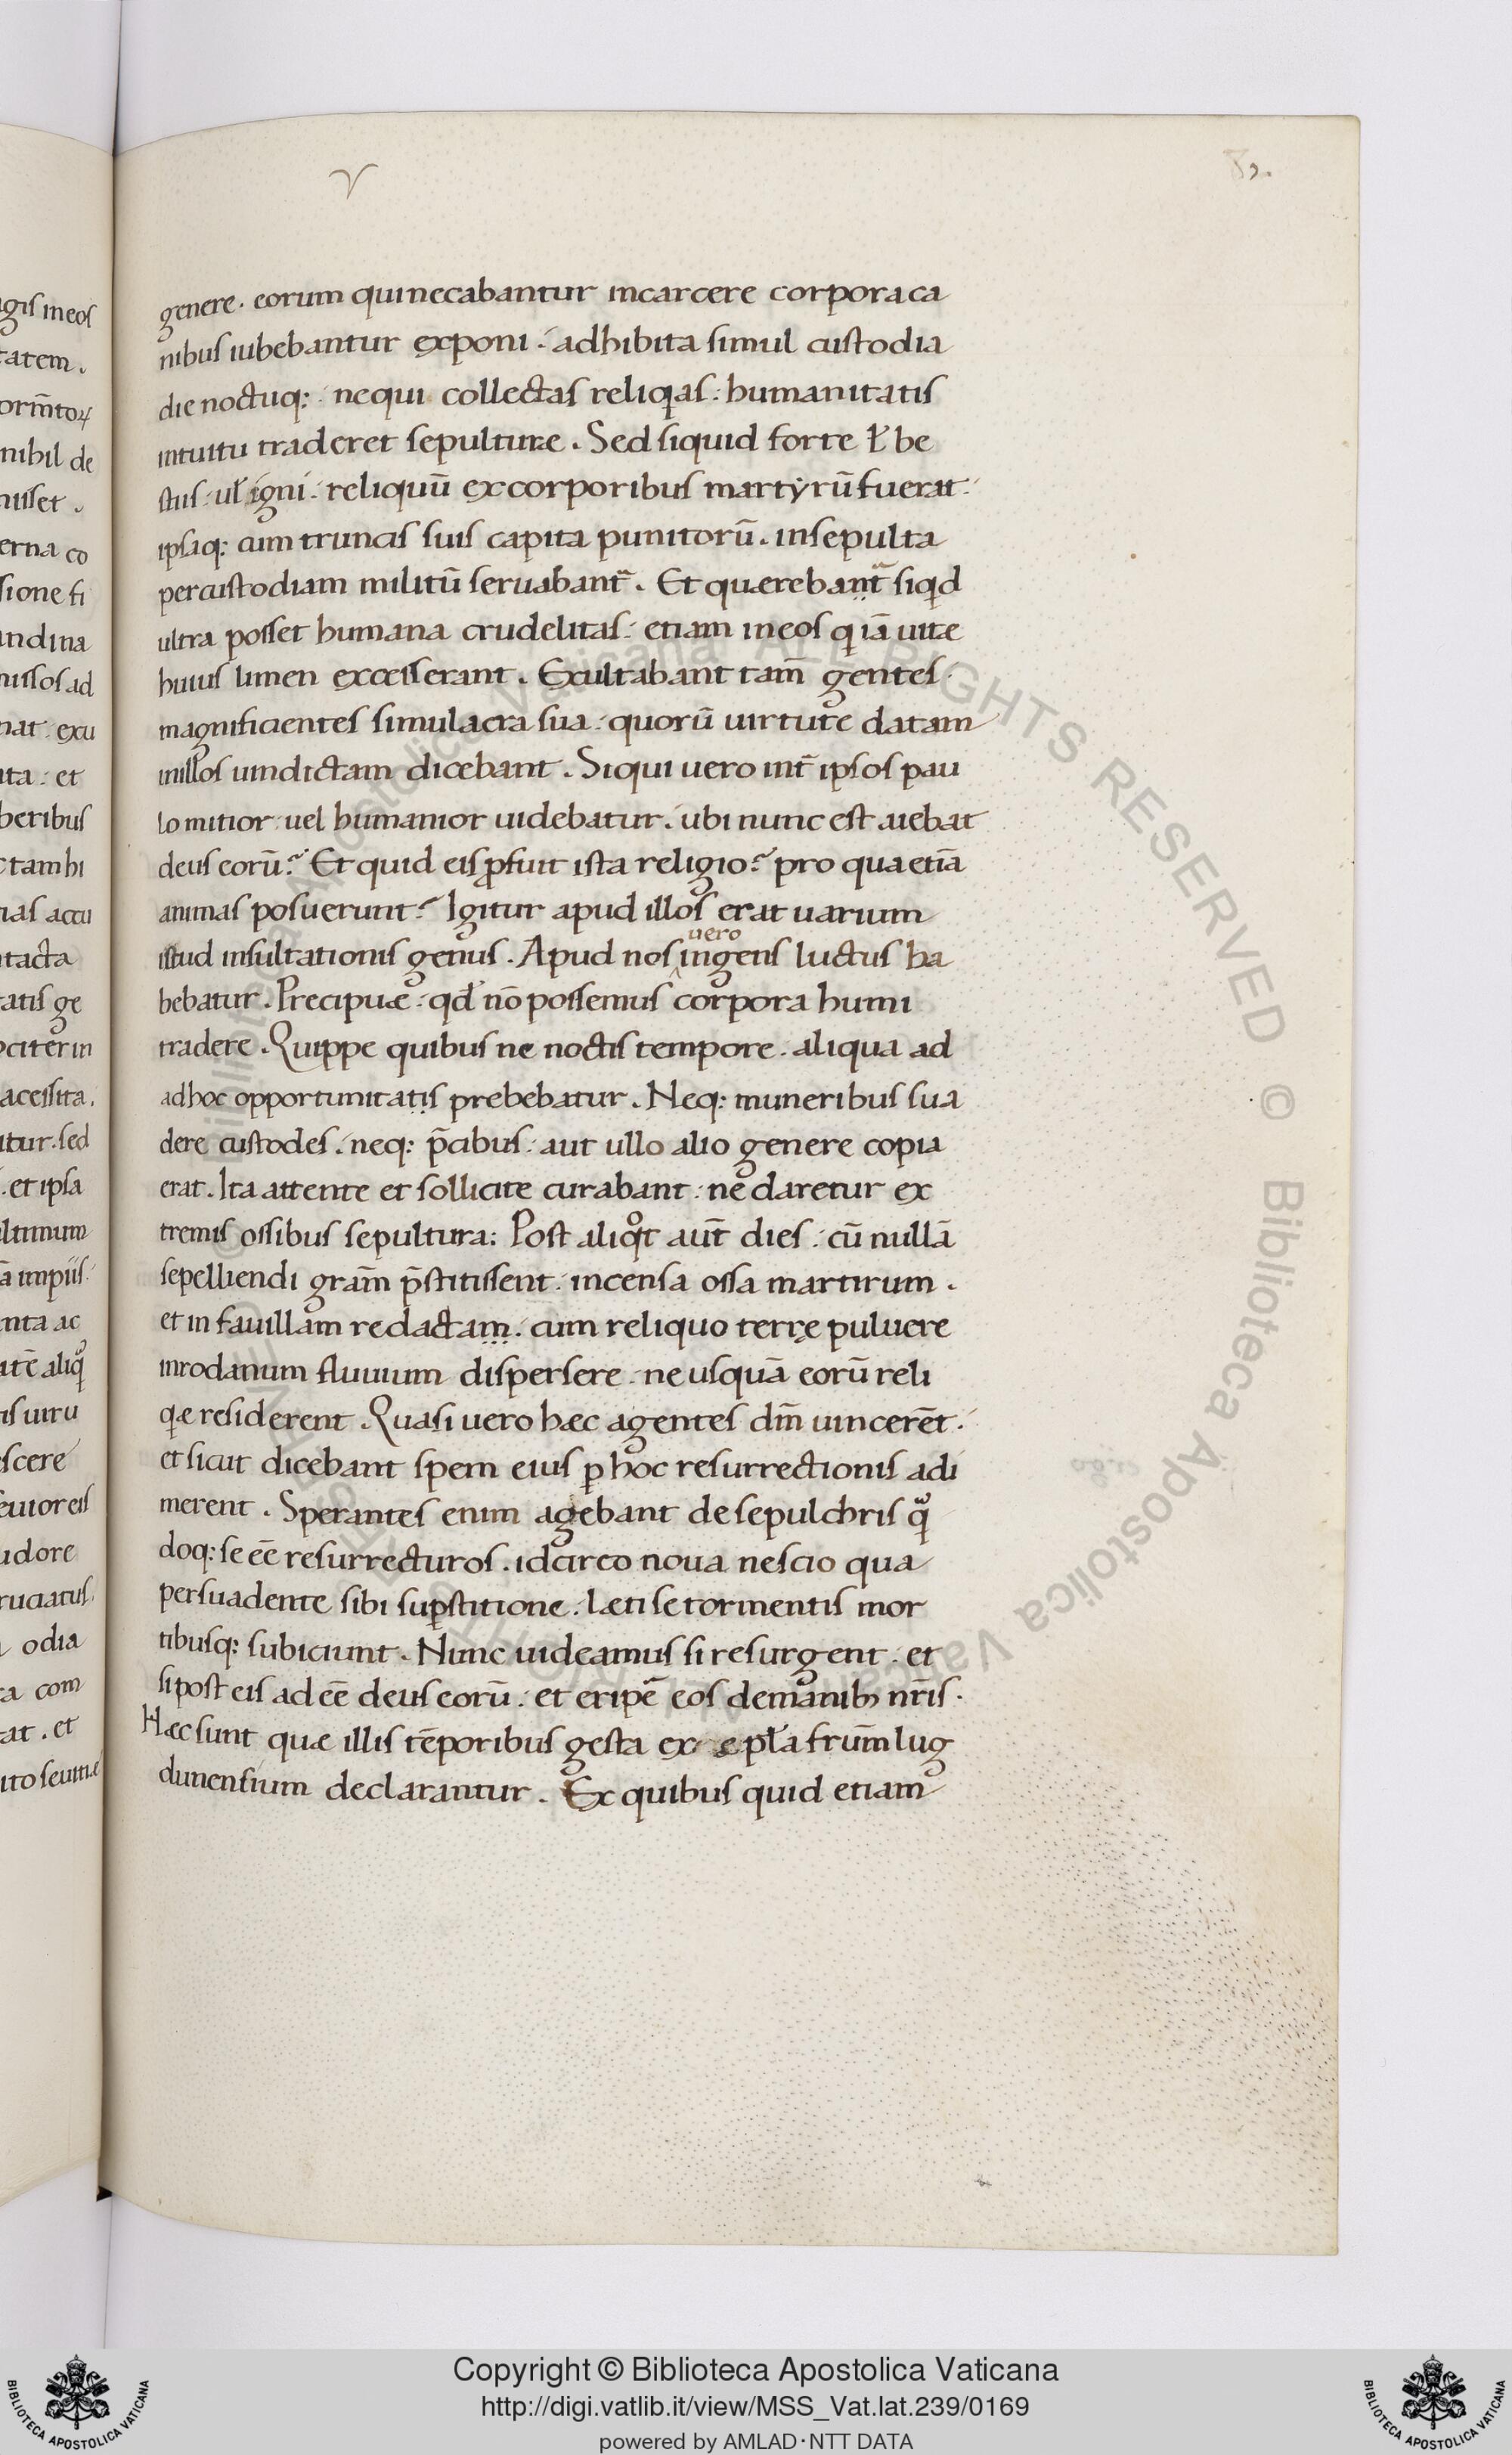 V
82.
genere. eorum qui necabantur incarcere corpora ca
nibus iubebantur exponi. adhibita simul custodia
die noctuq: nequi collectas reliq̃as. humanitatis
intuitu traderet sepulturæ. Sed siquid forte ł be
stiis. uł igni. reliquũ excorporibus martyrũ fuerat.
ipsaq: cum truncis suis capita punitorũ. insepulta
percustodiam militũ seruabant̃. Et quærebant̃ siqd
ultra posset humana crudelitas. etiam ineos q iã uitæ
huius limen excesserant. Exultabant tam̃ gentes.
magnificientes simulacra sua. quorũ uirtute datam
inillos uindictam dicebant. Siqui uero int̃ ipsos pau
lo mitior uel humanior uidebatur. ubi nunc est aiebat
deus eorũ? Et quid eis ꝓfuit ista religio? pro qua etiã
animas posuerunt? Igitur apud illos erat uarium
istud insultationis genus. Apud nos uero ingens luctus ha
bebatur. Precipuæ. qđ nõ possemus corpora humi
tradere. Quippe quibus ne noctis tempore. aliqua ad
adhoc opportunitatis prebebatur. Neq: muneribus sua
dere custodes. neq: p̃cibus. aut ullo alio genere copia
erat. Ita attente et sollicite curabant. ne daretur ex
tremis ossibus sepultura; Post aliqͦt aut̃ dies. cũ nullã
sepelliendi gram̃ p̃stitissent. incensa ossa martirum.
et in fauillam redactam. cum reliquo terrę puluere
inrodanum fluuium dispersere. ne usquã eorũ reli
q̃æ residerent. Quasi uero hæc agentes dm̃ uincerẽt.
et sicut dicebant spem eius ꝑ hoc resurrectionis adi
merent. Sperantes enim agebant de sepulchris q̃
doq: se eẽ resurrecturos. idcirco noua nescio qua
persuadente sibi suꝑstitione. læti se tormentis mor
tibusq: subiciunt. Nunc uideamus si resurgent. et
si post eis ad eẽ deus eorũ. et eripẽ eos demanib; nr̃is.
Hæc sunt quæ illis tẽporibus gesta ex epła frũm lug
dunensium declarantur. Ex quibus quid etiam
Copyright © Biblioteca Apostolica Vaticana
http://digi.vatlib.it/view/MSS_Vat.lat.239/0169
powered by AMLAD·NTT DATA